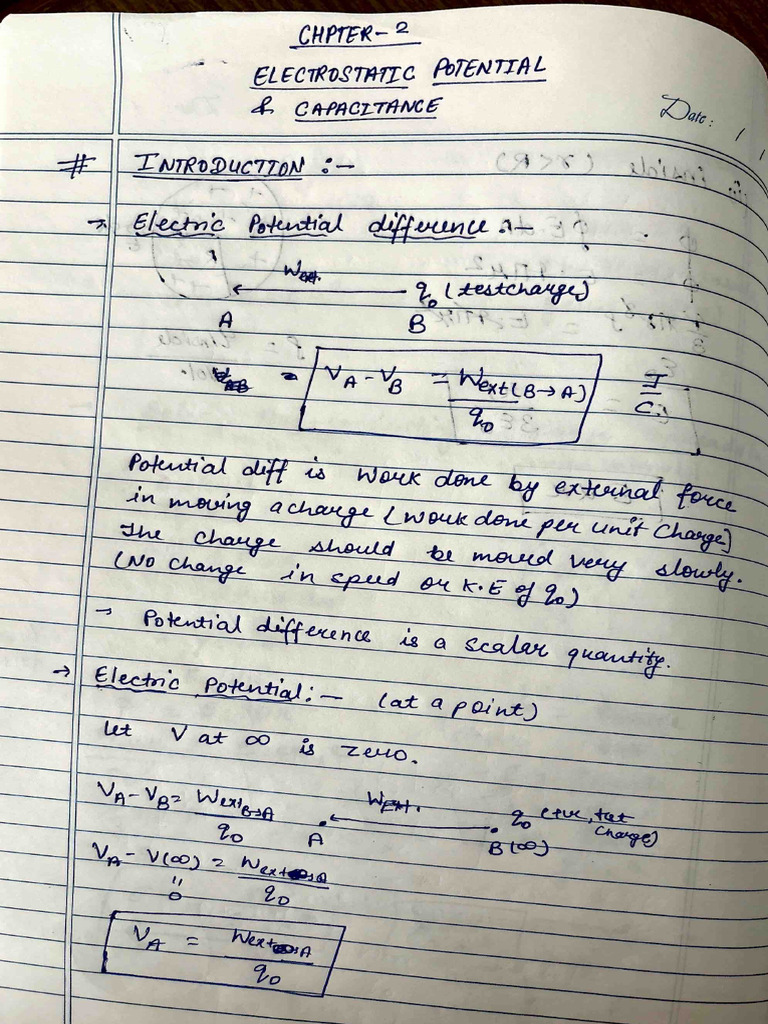 CHPTER-2
ELECTROSTATIC POTENTIAL
& CAPACITANCE
Date: / /
# INTRODUCTION :-
→ Electric Potential difference :-
Wext.
q₀ (testcharge)
A B
= V_A - V_B = Wext(B→A) / q₀ = J/C
Potential diff is work done by external force
in moving a charge (work done per unit charge)
The charge should be moved very slowly.
(No change in speed or K.E of q₀)
→ Potential difference is a scalar quantity.
→ Electric Potential :- (at a point)
Let V at ∞ is zero.
V_A - V_B = Wext B→A / q₀
WExt.
A B(∞) q₀ (+ve, test charge)
V_A - V(∞) = Wext ∞→A / q₀
"
0
V_A = Wext ∞→A / q₀